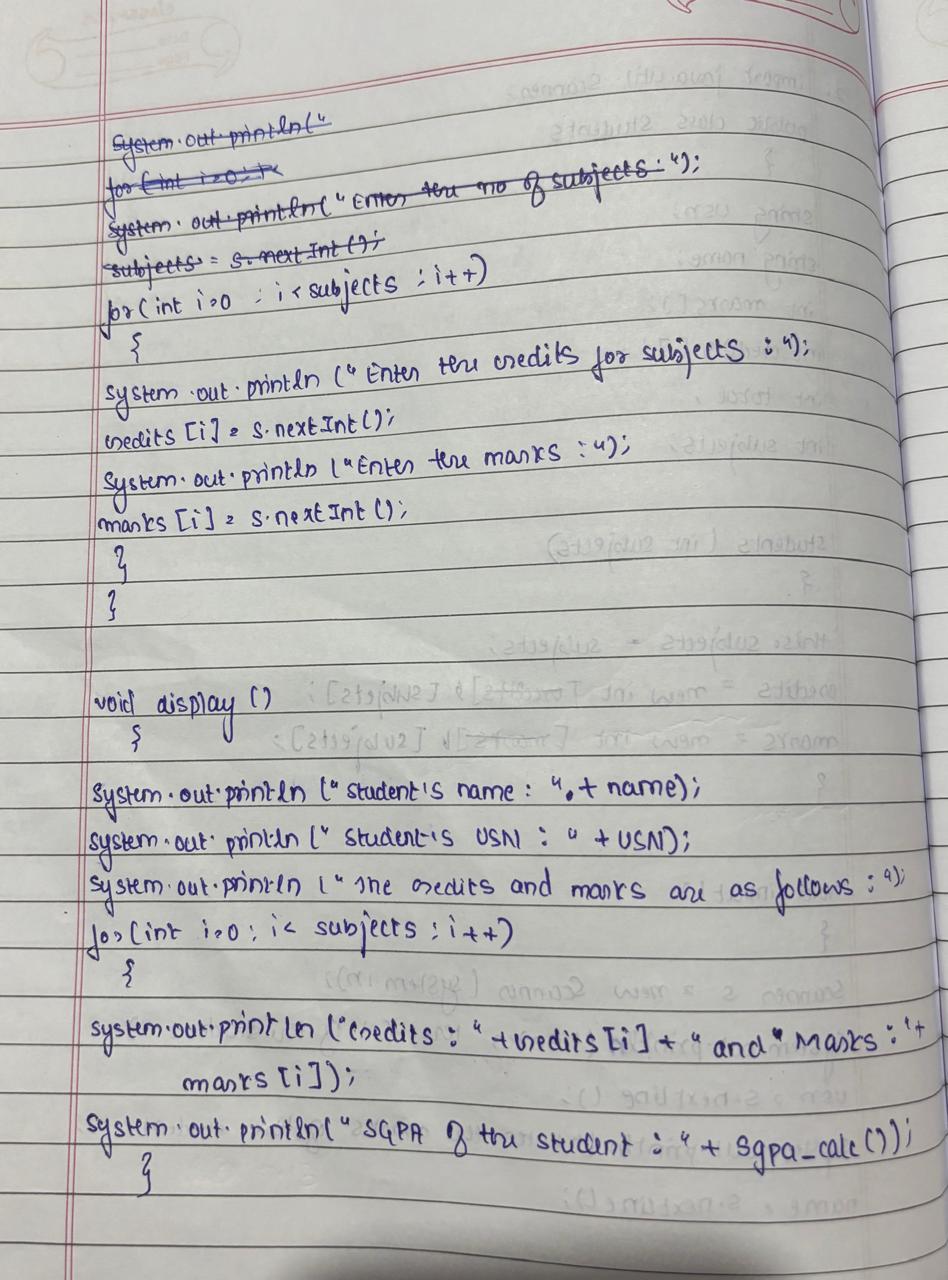 System.out.println("
for (int i=0; i<
System.out.println("Enter the no of subjects:");
subjects = s.nextInt();
for(int i=0 ; i<subjects ; i++)
{
System.out.println ("Enter the credits for subjects :");
credits [i] = s.nextInt();
System.out.println ("Enter the marks :");
marks [i] = s.nextInt();
}
}
void display ()
{
System.out.println ("student's name : ".+ name);
System.out.println (" student's USN : " + USN);
System.out.println (" The credits and marks are as follows :");
for(int i=0; i< subjects ; i++)
{
System.out.println ("Credits : " +credits [i] + " and " Marks : "+
marks [i]);
System.out.println(" SGPA of the student : " + Sgpa_calc());
}